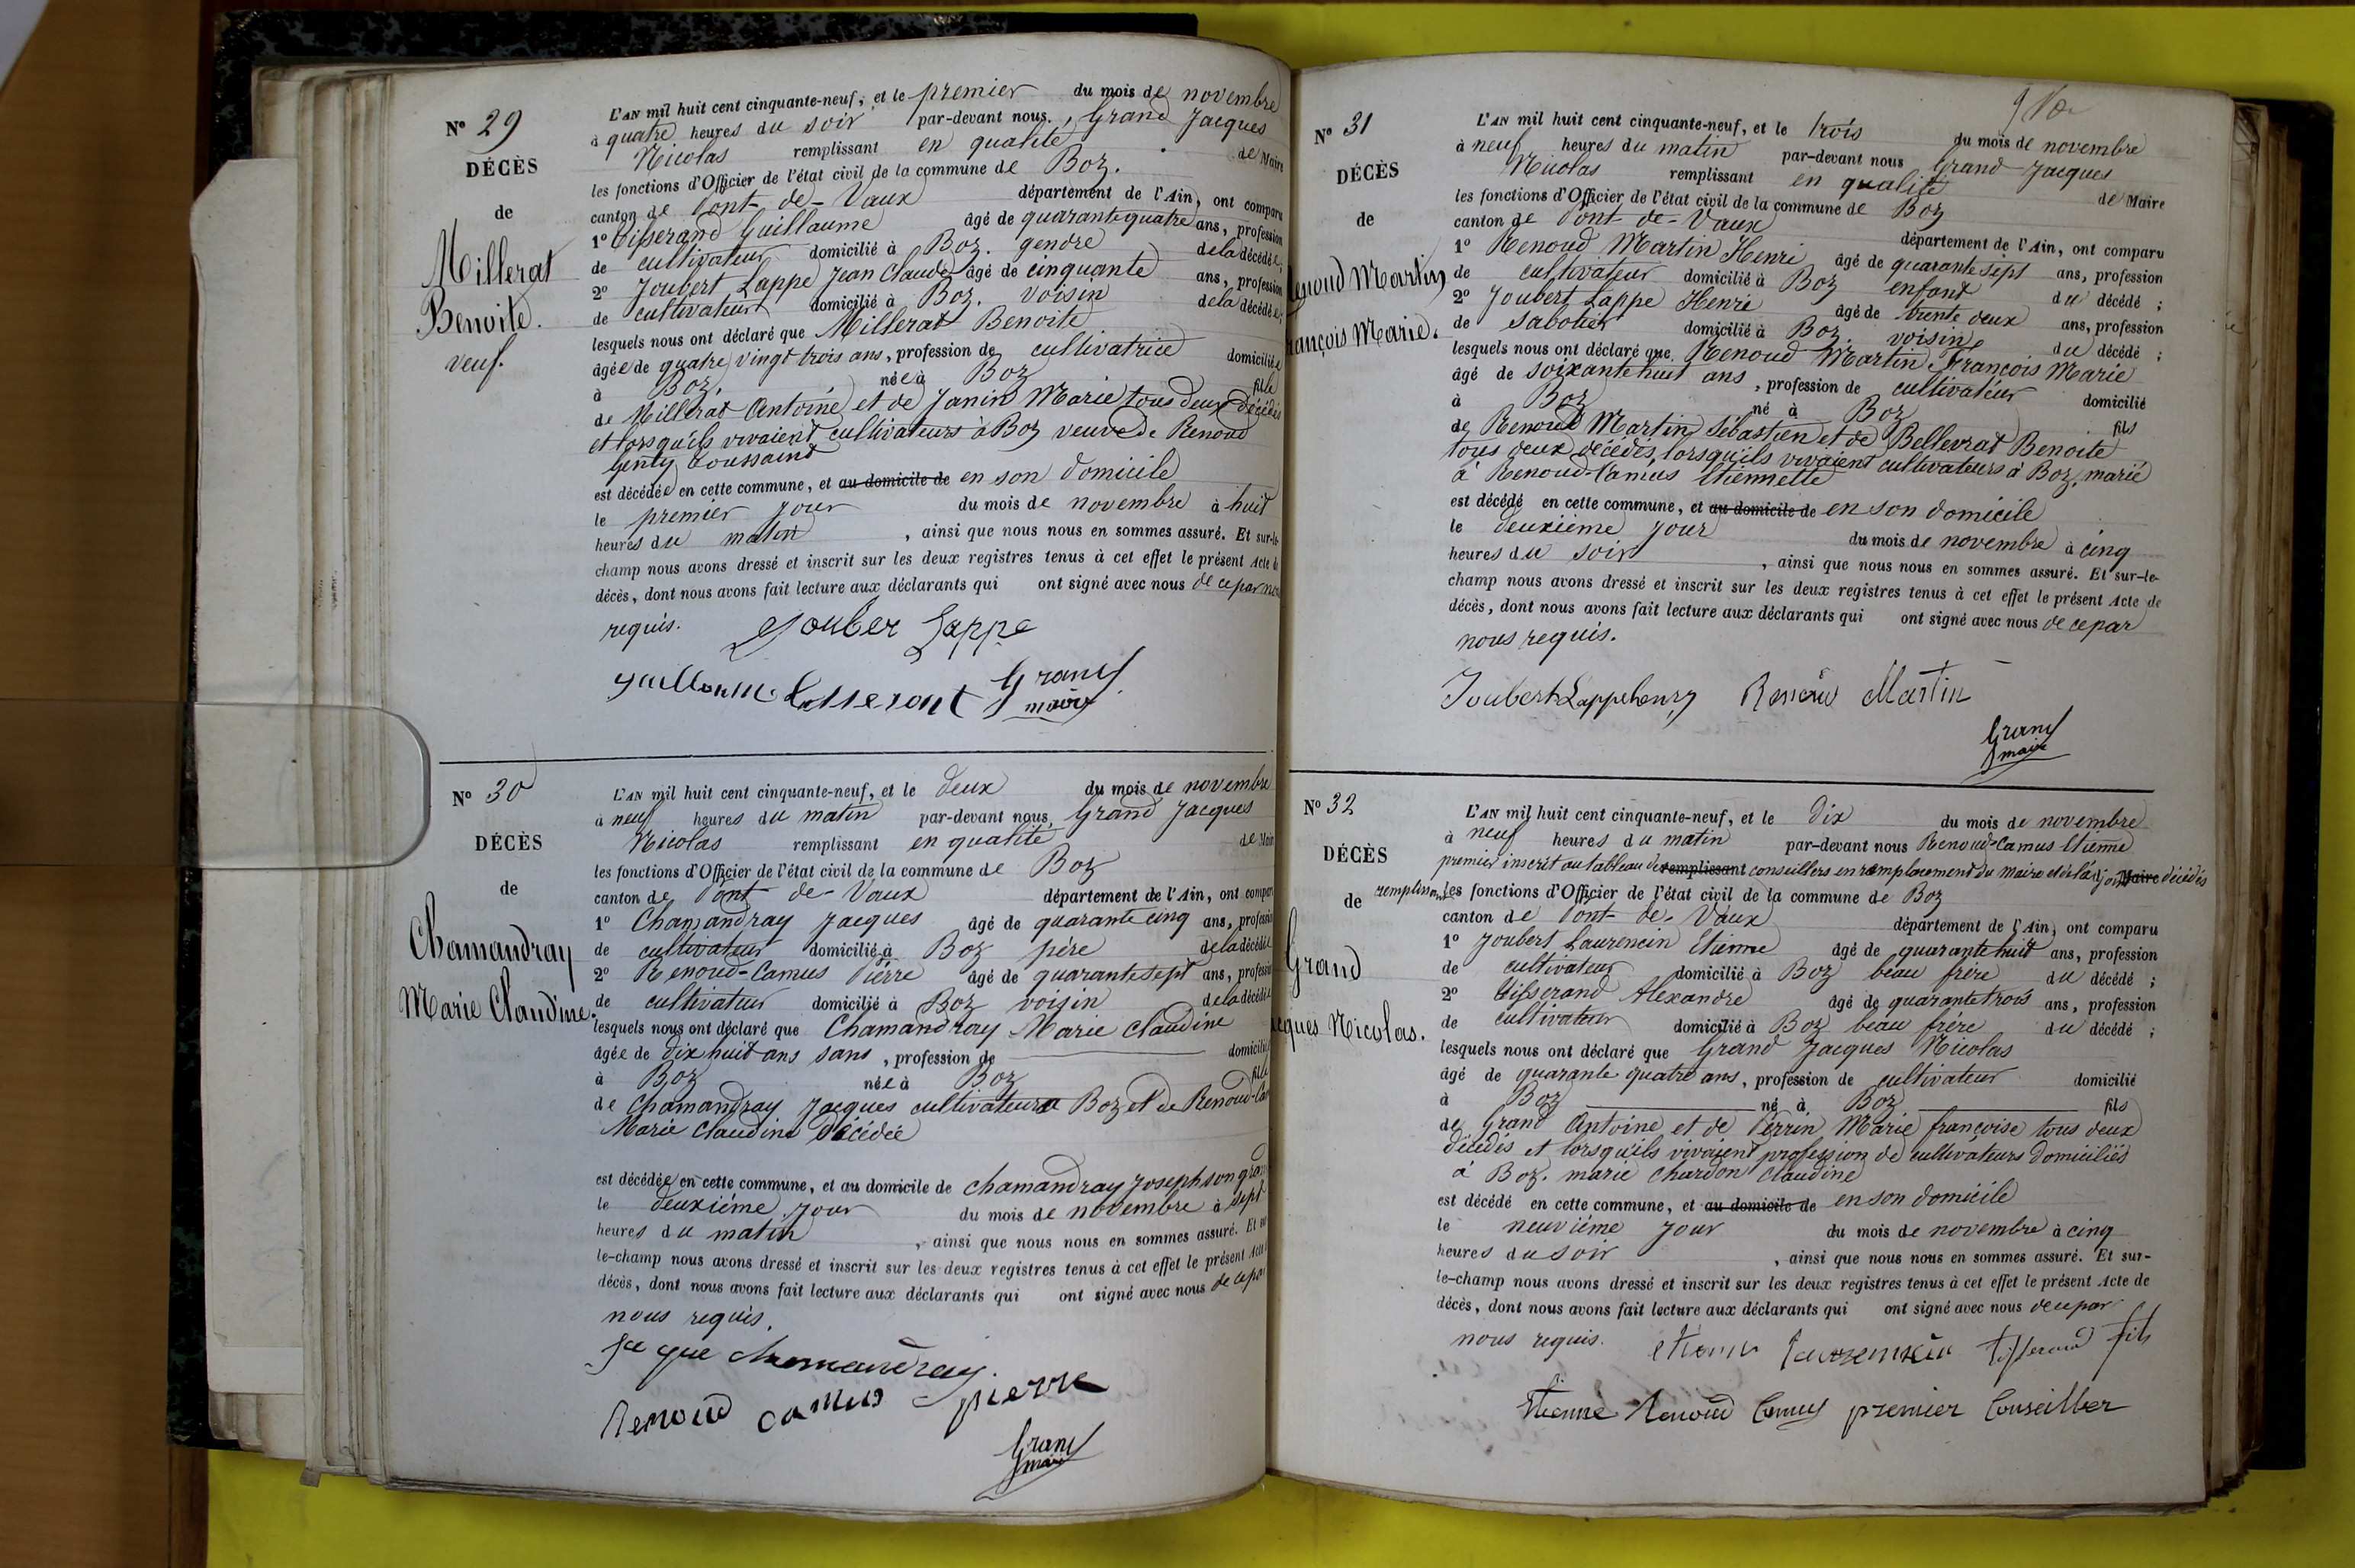 N° 29
DÉCÈS
de
Millerat
Benoite.
veuf.
L'AN mil huit cent cinquante-neuf, et le premier du mois de novembre
à quatre heures du soir par-devant nous, Grand Jacques
Nicolas remplissant en qualité de Maire
les fonctions d'Officier de l'état civil de la commune de Boz.
canton de Pont-de-Vaux département de l'Ain, ont comparu
1° Tisserand Guillaume âgé de quarante quatre ans, profession
de cultivateur domicilié à Boz. gendre de la décédée;
2° Joubert Lappe Jean Claude âgé de cinquante ans, profession
de cultivateur domicilié à Boz. voisin de la décédée;
lesquels nous ont déclaré que Millerat Benoite
âgée de quatre vingt trois ans, profession de cultivatrice domiciliée
à Boz. née à Boz fille
de Millerat Antoine et de Janin Marie tous deux décédés
et lorsqu'ils vivaient cultivateurs à Boz veuve de Renoud
Genty Toussaint
est décédée en cette commune, et au domicile de en son domicile
le premier jour du mois de novembre à huit
heures du matin, ainsi que nous nous en sommes assuré. Et sur-le-
champ nous avons dressé et inscrit sur les deux registres tenus à cet effet le présent Acte de
décès, dont nous avons fait lecture aux déclarants qui ont signé avec nous de ce par nous
requis. Jouber Lappe
Guillaume Tisseront Grand
maire
N° 30
DÉCÈS
de
Chamandray
Marie Claudine.
L'AN mil huit cent cinquante-neuf, et le deux du mois de novembre
à neuf heures du matin par-devant nous, Grand Jacques
Nicolas remplissant en qualité de Maire
les fonctions d'Officier de l'état civil de la commune de Boz
canton de Pont-de-Vaux département de l'Ain, ont comparu
1° Chamandray Jacques âgé de quarante cinq ans, profession
de cultivateur domicilié à Boz père de la décédée
2° Renoud-Camus Pierre âgé de quarante sept ans, profession
de cultivateur domicilié à Boz voisin de la décédée
lesquels nous ont déclaré que Chamandray Marie Claudine
âgée de dix huit ans sans, profession de domiciliée
à Boz née à Boz fille
de Chamandray Jacques cultivateur à Boz et de Renoud-Ca
Marie Claudine décédée
est décédée en cette commune, et au domicile de chamandray Joseph son gran
le deuxième jour du mois de novembre à sept
heures du matin, ainsi que nous nous en sommes assuré. Et sur
le-champ nous avons dressé et inscrit sur les deux registres tenus à cet effet le présent Acte
décès, dont nous avons fait lecture aux déclarants qui ont signé avec nous de ce par
nous requis.
Jaque chamandray.
Renoud camus pierre
Grand
maire
N° 31
DÉCÈS
de
Renoud Martin
François Marie.
L'AN mil huit cent cinquante-neuf, et le trois du mois de novembre
à neuf heures du matin par-devant nous Grand Jacques
Nicolas remplissant en qualité de Maire
les fonctions d'Officier de l'état civil de la commune de Boz
canton de Pont-de-Vaux département de l'Ain, ont comparu
1° Renoud Martin Henri âgé de quarante sept ans, profession
de cultivateur domicilié à Boz enfant du décédé;
2° Joubert Lappe Henri âgé de trente deux ans, profession
de sabotier domicilié à Boz. voisin du décédé;
lesquels nous ont déclaré que Renoud Martin François Marie
âgé de soixante huit ans, profession de cultivateur domicilié
à Boz né à Boz fils
de Renoud Martin Sébastien et de Bellevrat Benoite
tous deux décédés, lorsqu'ils vivaient cultivateurs à Boz, marié
à Renoud-Camus Etiennette
est décédé en cette commune, et au domicile de en son domicile
le deuxième jour du mois de novembre à cinq
heures du soir, ainsi que nous nous en sommes assuré. Et sur-le-
champ nous avons dressé et inscrit sur les deux registres tenus à cet effet le présent Acte de
décès, dont nous avons fait lecture aux déclarants qui ont signé avec nous de ce par
nous requis.
Joubert Lappe henry Renoud Martin
Grand
maire
N° 32
DÉCÈS
de
Grand
Jacques Nicolas.
L'AN mil huit cent cinquante-neuf, et le dix du mois de novembre
à neuf heures du matin par-devant nous Renoud-Camus Etienne
premier inscrit au tableau des remplissant conseillers en remplacement du maire et de l'adjoint Maire décédés
remplissant les fonctions d'Officier de l'état civil de la commune de Boz
canton de Pont-de-Vaux département de l'Ain, ont comparu
1° Joubert Laurencin Etienne âgé de quarante huit ans, profession
de cultivateur domicilié à Boz beau frère du décédé;
2° Tisserand Alexandre âgé de quarante trois ans, profession
de cultivateur domicilié à Boz beau frère du décédé;
lesquels nous ont déclaré que Grand Jacques Nicolas
âgé de quarante quatre ans, profession de cultivateur domicilié
à Boz né à Boz fils
de Grand Antoine et de Perrin Marie françoise tous deux
décédés et lorsqu'ils vivaient profession de cultivateurs domiciliés
à Boz. marié chardon Claudine
est décédé en cette commune, et au domicile de en son domicile
le neuvième jour du mois de novembre à cinq
heures du soir, ainsi que nous nous en sommes assuré. Et sur-
le-champ nous avons dressé et inscrit sur les deux registres tenus à cet effet le présent Acte de
décès, dont nous avons fait lecture aux déclarants qui ont signé avec nous de ce par
nous requis. etienne Tisserand fils
Etienne Renoud Camus premier Conseiller